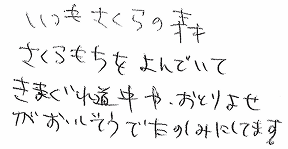 いつもさくらの素
さくらもちをよんでいて
きまぐれ道中や、おとりよせ
がおいしそうでたのしみにしてます